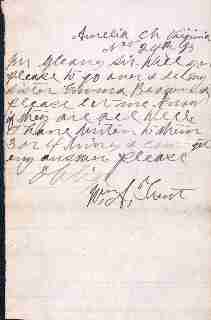 Amelia CH Virginia
Nov 24th 93
Mr Sir Will you
please to go over
sister Emma
please let me know
if they are all well
I have writen to them
3 or 4 times & can get
any answer please
Wm A. Trent